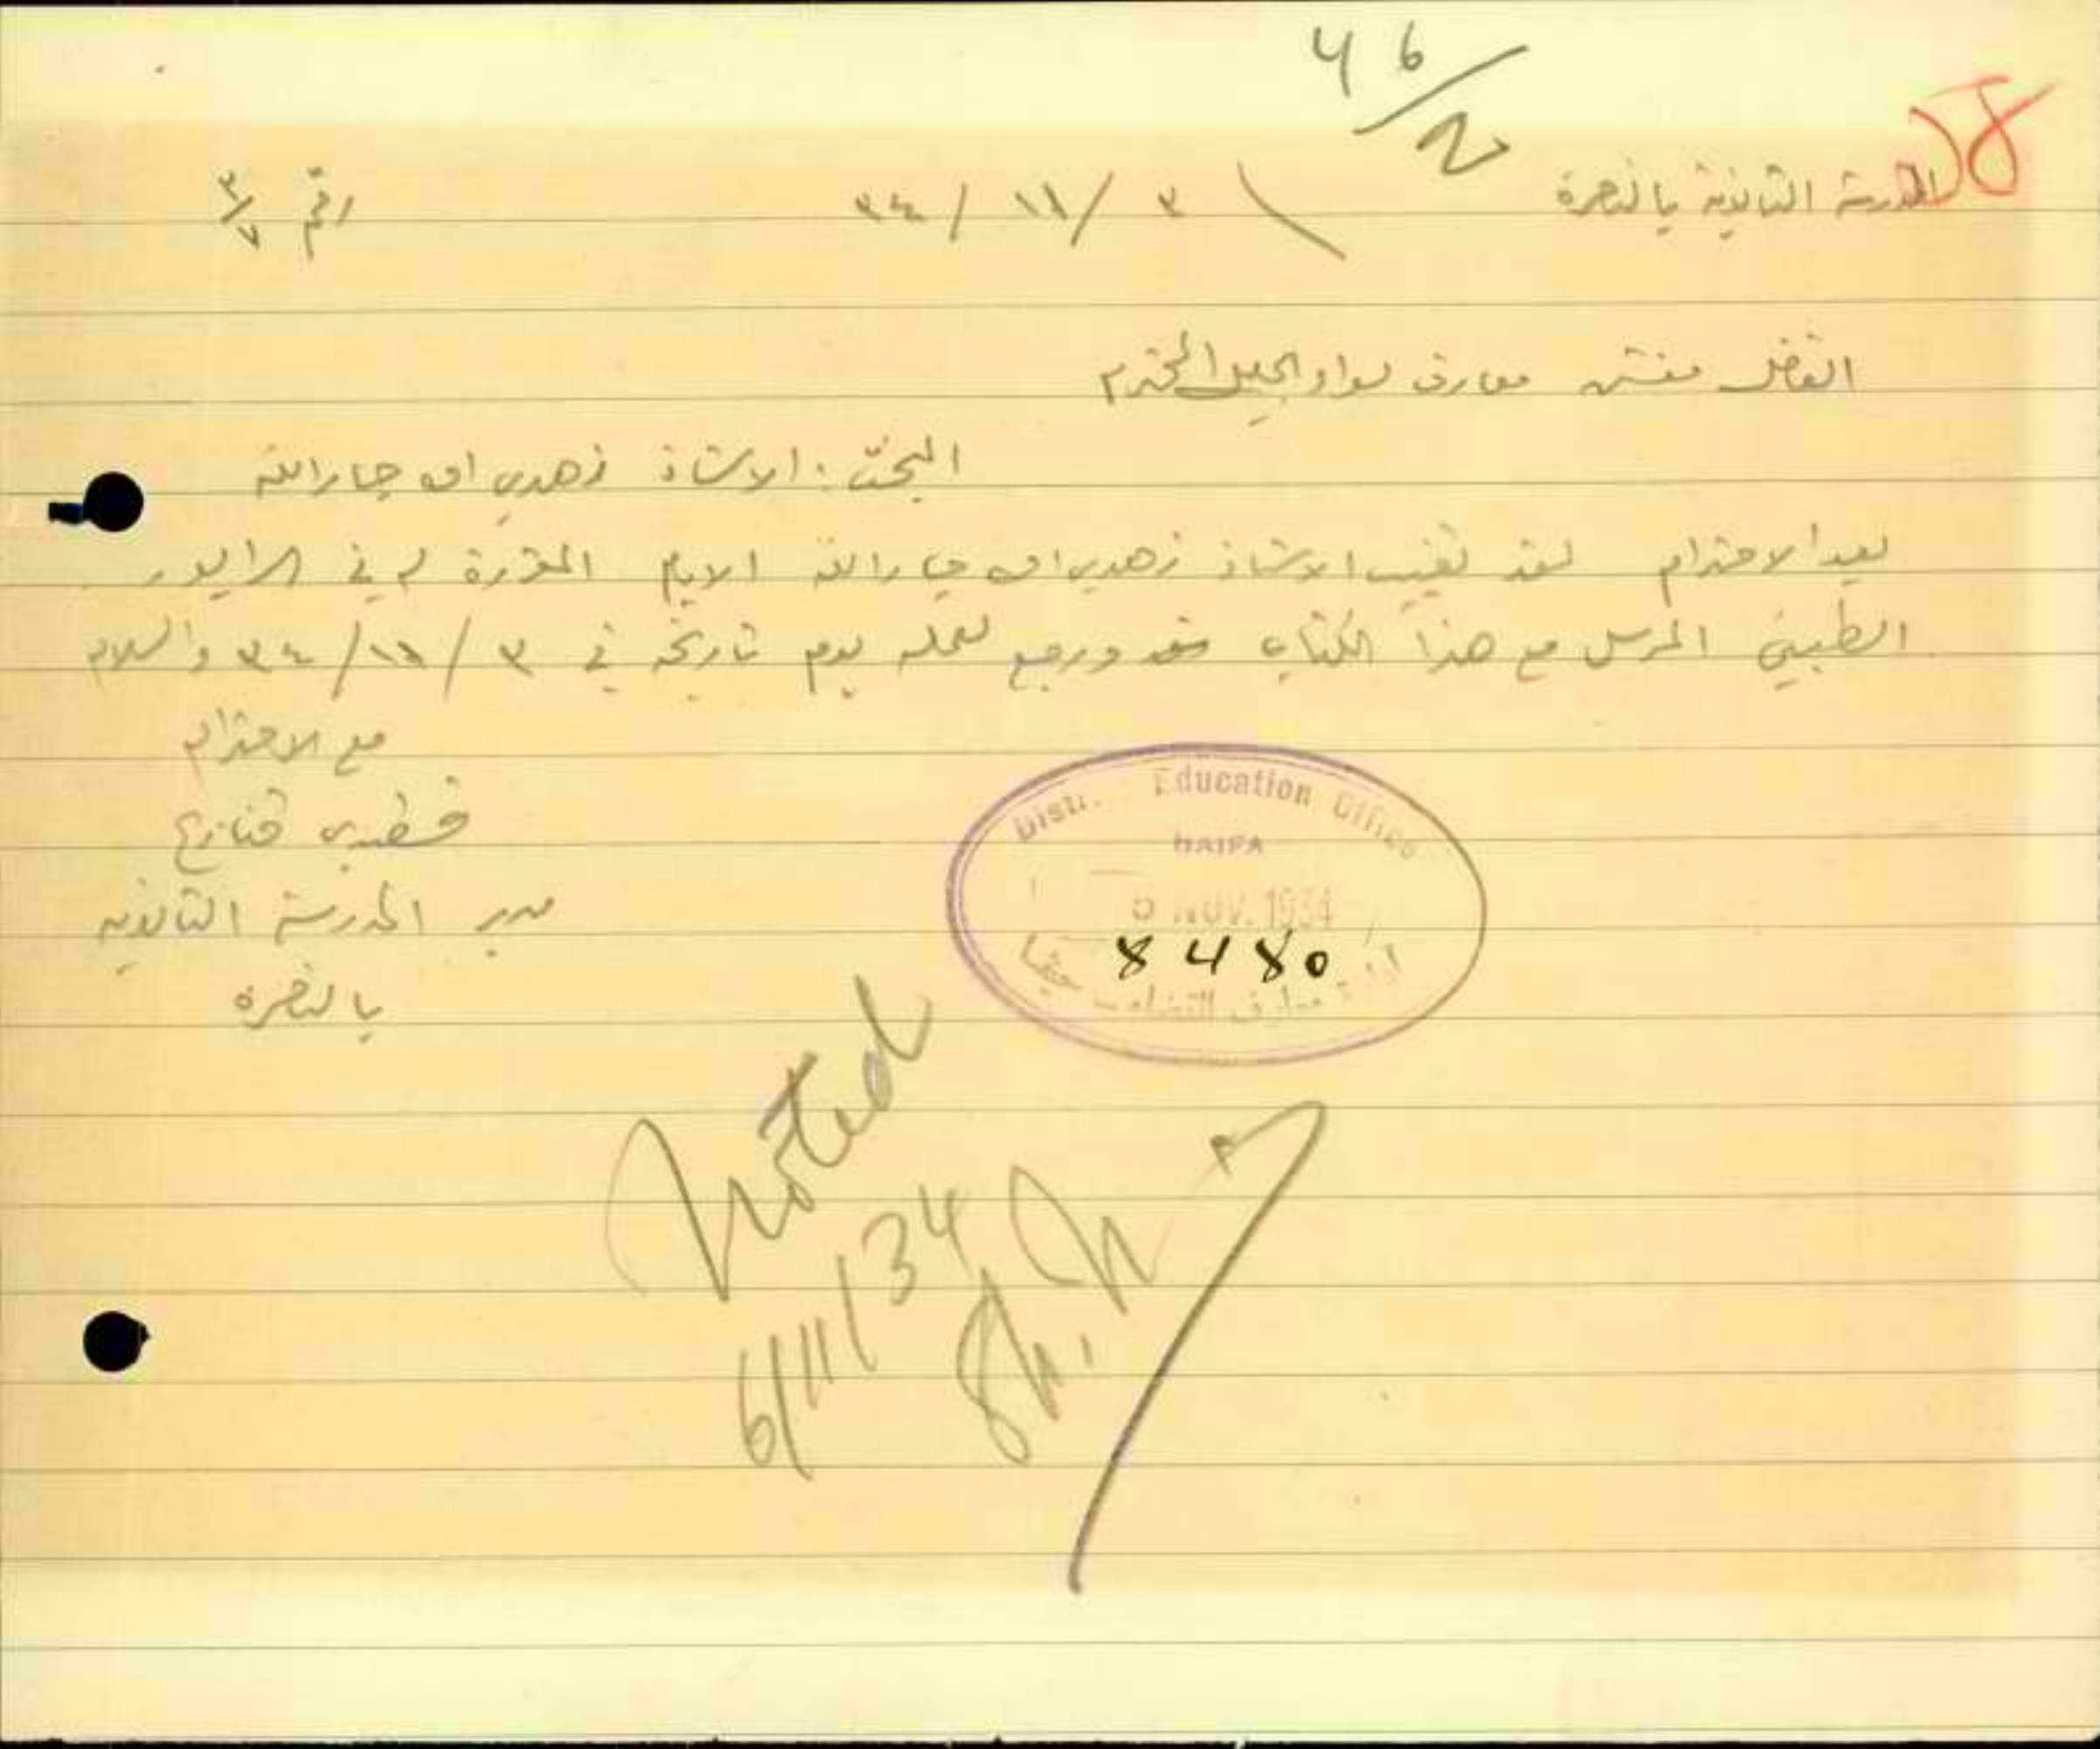 46/2
58
المدرسة الثانوية بالناصرة ٣ / ١١ / ٣٤ رقم ٣/٧
الفاضل مفتش معارف لواء الجليل المحترم
البحث : الاستاذ زهدي اف جارالله
بعد الاحترام لقد تغيب الاستاذ زهدي اف جارالله الايام المقررة له في الرابور
الطبي المرسل مع هذا الكتاب ورجع لعمله يوم تاريخه في ٣ / ١١ / ٣٤ والسلام
مع الاحترام
مدير المدرسة الثانوية
بالناصرة
Distr. Education Office
HAIFA
5 NOV. 1934
8480
ادارة معارف القضاء - حيفا
Noted
6/11/34